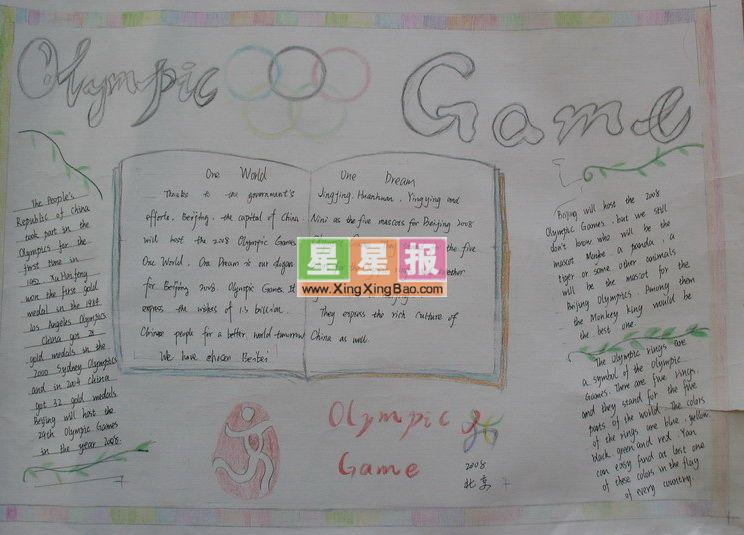 Olympic Game
The People's
Republic of China
took part in the
Olympics for the
first time in
1952. Xu Haifeng
won the first gold
medal in the 1984
Los Angeles Olympics
China got 28
gold medals in the
2000 Sydney Olympics
and in 2004 China
got 32 gold medals.
Beijing will host the
29th Olympic Games
in the year 2008.
One World
Thanks to the government's
efforts. Beijing, the capital of China
will host the 2008 Olympic Games
One World, One Dream is our slogan
for Beijing 2008. Olympic Games. It
express the wishes of 1.3 billion
Chinese people for a better world tomorrow
We have chosen Beibei
One Dream
Jingjing, Huanhuan, Yingying and
Nini as the five mascots for Beijing 2008
the five
They express the rich culture of
China as well.
星星报
www.XingXingBao.com
Beijing will host the 2008
Olympic Games, but we still
don't know who will be the
mascot Maybe a panda, a
tiger or some other animals
will be the mascot for the
Beijing Olympics. Among them
the Monkey king would be
the best one.
The Olympic rings are
a symbol of the Olympic
Games. There are five rings
and they stand for the five
parts of the world. The colors
of the rings are blue, yellow
black, green and red. You
can easy find at least one
of these colors in the flag
of every country.
Olympic
Game
2008
北京